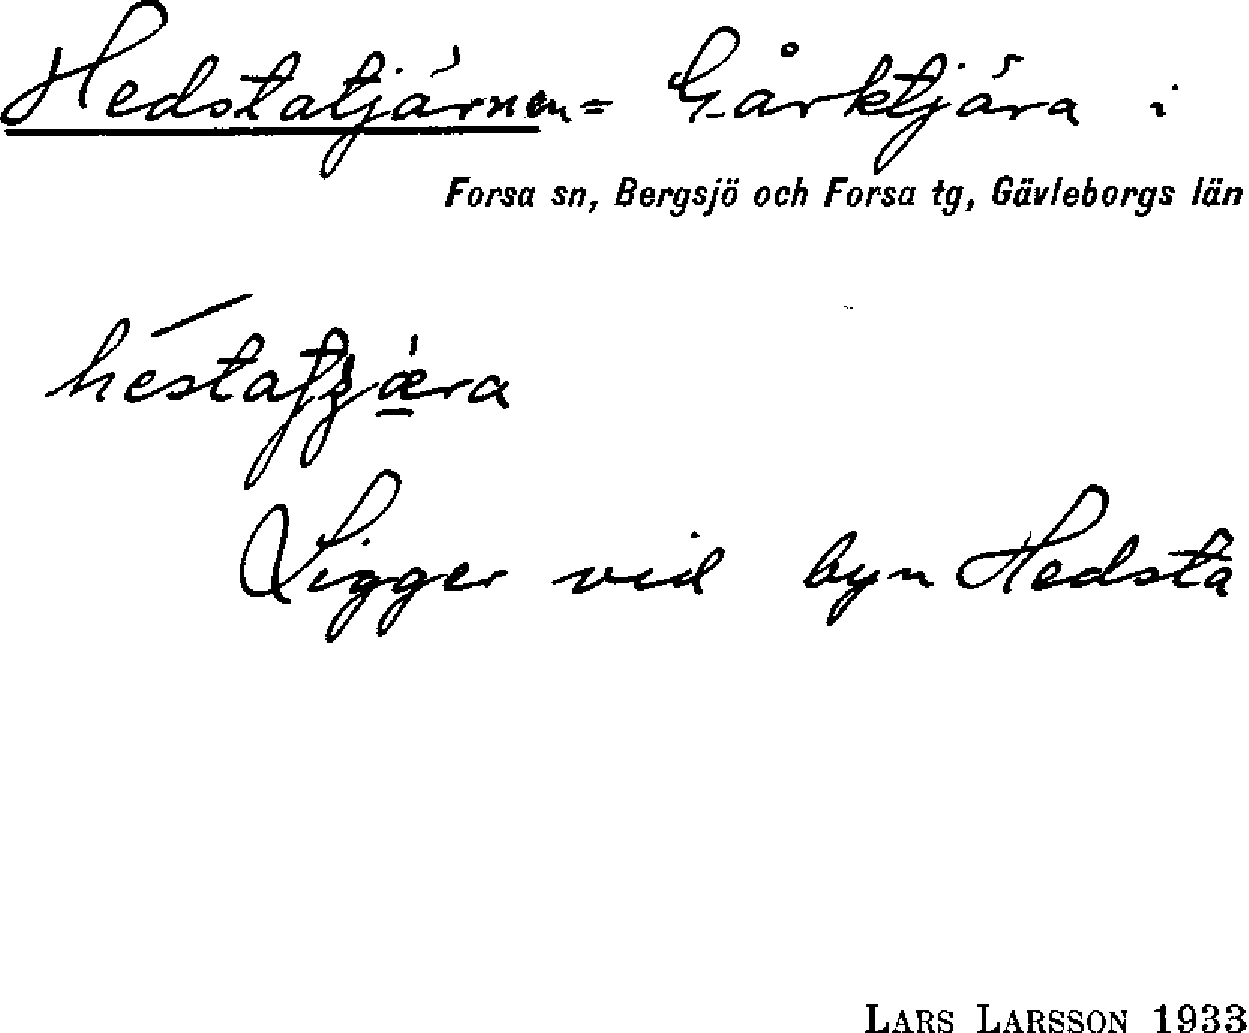 Hedstatjärnen = Gårktjära i
Forsa sn, Bergsjö och Forsa tg, Gävleborgs län
Ligger vid byn Hedsta
LARS LARSSON 1933